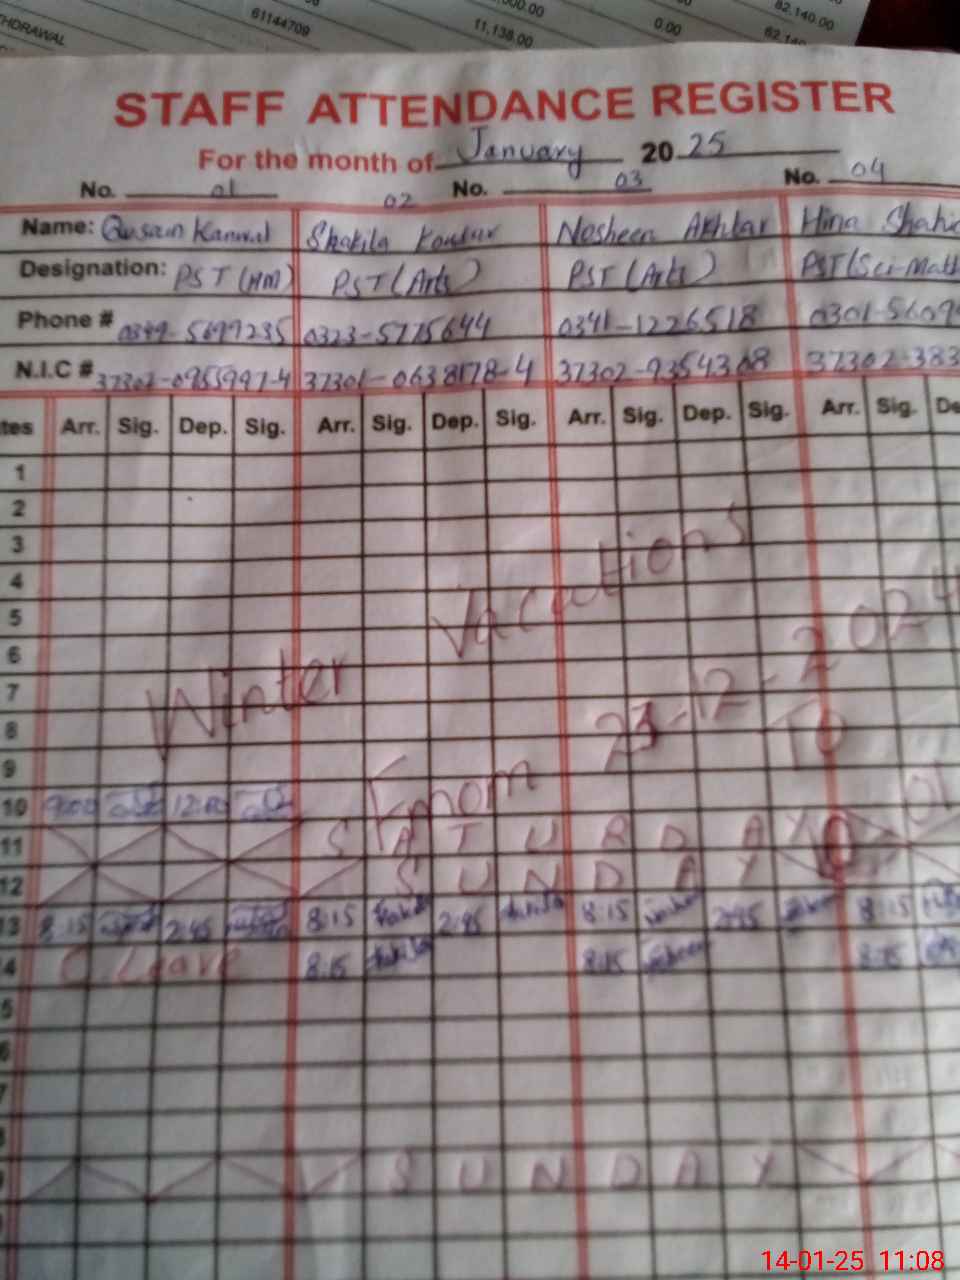 THDRAWAL 61144709 11,138.00 0.00 82,140.00
STAFF ATTENDANCE REGISTER
For the month of January 2025
No. 01 02 No. 03 No. 04
Name: Qusain Kanwal Shakila Kousar Nosheen Akhtar Hina Shahi
Designation: PST (HM) PST (Arts) PST (Arts) PST (Sci-Math
Phone # 0349-5699235 0323-5775644 0341-1226518 0301-5609
N.I.C # 37302-0955997-4 37301-0638178-4 37302-9354308 37302-383
tes Arr. Sig. Dep. Sig. Arr. Sig. Dep. Sig. Arr. Sig. Dep. Sig. Arr. Sig. De
1
2
3
4
5
6
7
8
9
Winter Vacations
From 23-12-2024
To
10 9:00 12:00 01
11 SATURDAY
12 SUNDAY
13 8:15 2:45 8:15 2:45 8:15 2:45 8:15
4 C. Leave 8:15 8:15 8:15
5
6
7
8
9 SUNDAY
14-01-25 11:08